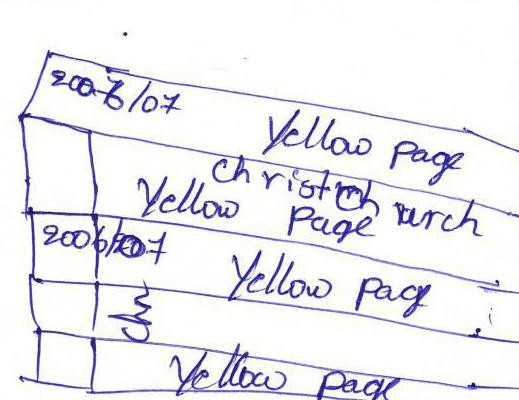 2006/07
Yellow page
Christchurch
Yellow page
2006/07
Yellow page
Yellow page